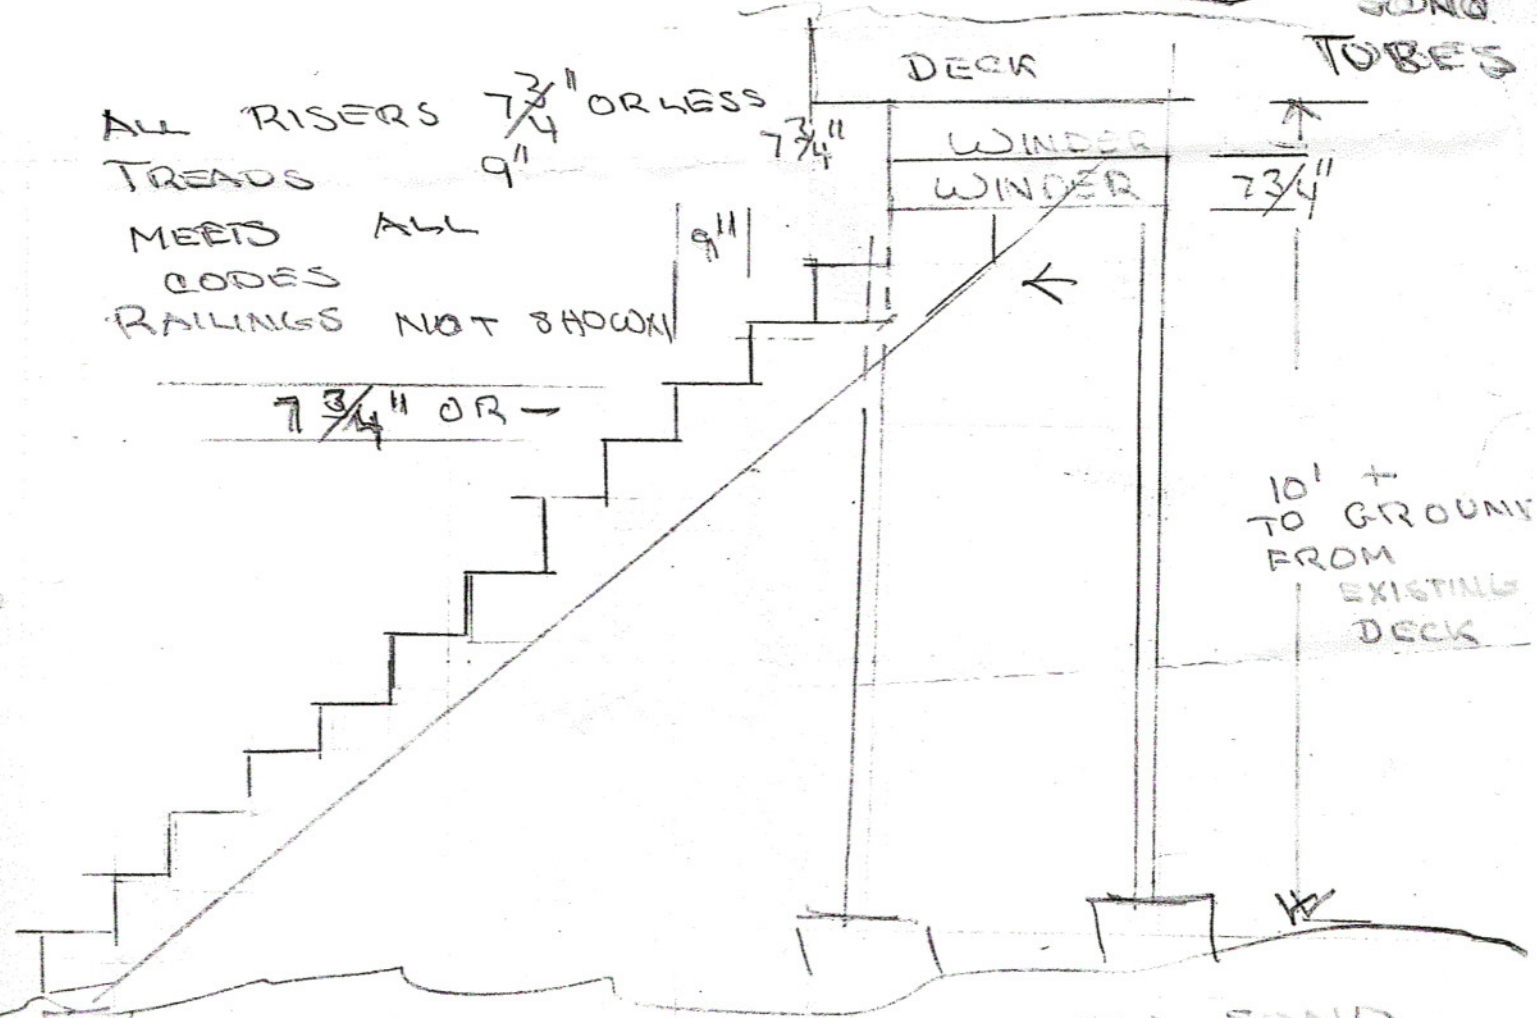 TUBES
DECK
ALL RISERS 7 3/4" OR LESS
TREADS 9"
MEETS ALL
CODES
RAILINGS NOT SHOWN
7 3/4"
WINDER
WINDER
7 3/4"
9"
7 3/4" OR -
10' +
TO GROUND
FROM
EXISTING
DECK